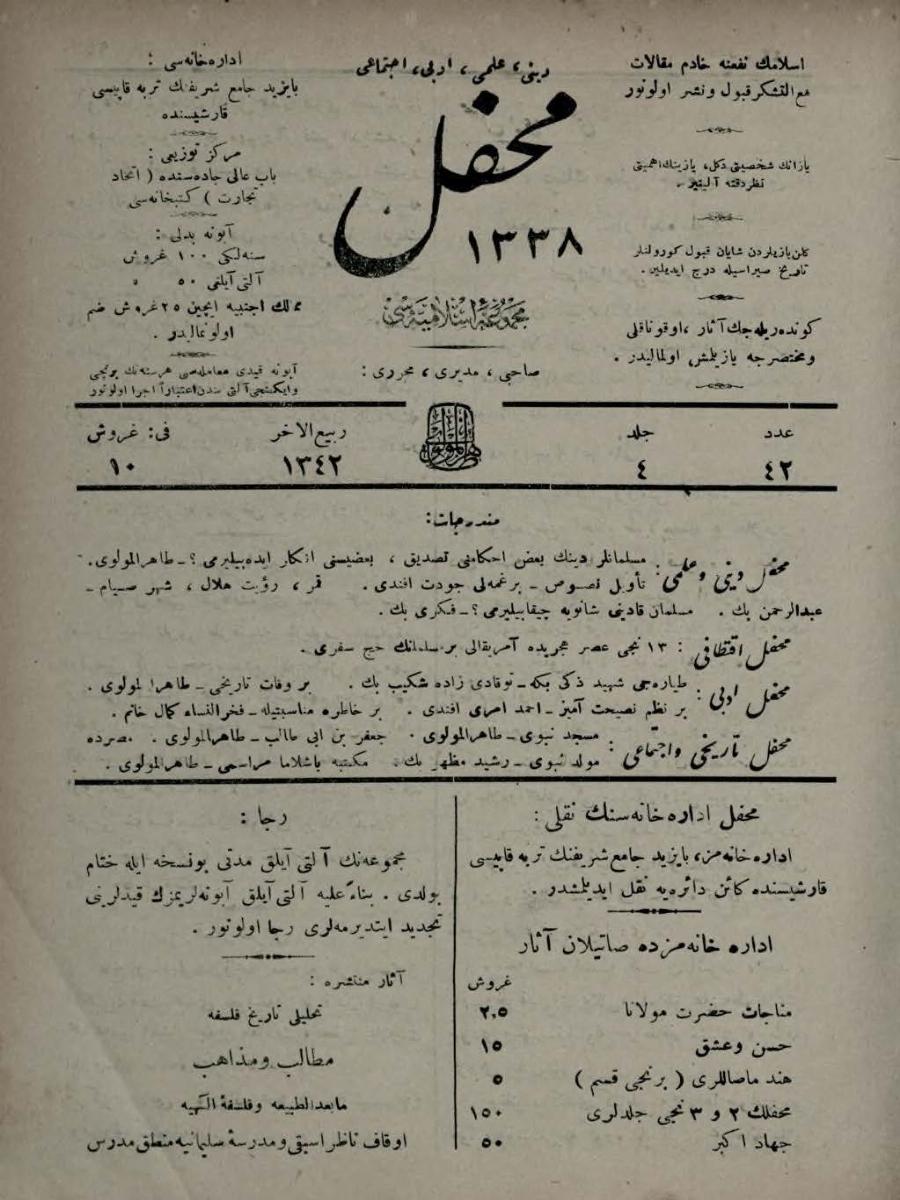 اسلامك نفعنه خادم مقالات
مع التشكر قبول و نشر اولونور
يازانك شخصيتی دكل، يازينك اهميتی
نظر دقته آلينير.
كلن يازيلردن شايان قبول كورولنلر
تاريخ صيراسيله درج ايديلير.
كوندريله جك آثار، اوقوناقلی
ومختصرجه يازيلمش اولماليدر.
دينی، علمی، ادبی، اجتماعی
محفل
١٣٣٨
مجموعهٔ اسلاميه سی
صاحبی، مديری، محرری:
اداره خانه سی:
بايزيد جامع شريفنك تربه قاپيسی
قارشيسنده
مركز توزيعی:
باب عالی جاده سنده (اتحاد
تجارت) كتبخانه سی
آبونه بدلی:
سنه لكی ١٠٠ غروش
آلتی آيلغی ٥٠ »
ممالك اجنبيه ايچين ٢٥ غروش ضم
اولونماليدر.
آبونه قيدی معامله سی هر سنه نك برنجی
وايكنجی آلتی سندن اعتباراً اجرا اولونور
طاهر المولوی
عدد جلد ربيع الاخر فی: غروش
٤٢ ٤ ١٣٤٢ ١٠
مندرجات:
محفل دينی وعلمی: مسلمانلر دينك بعض احكامنی تصديق، بعضيسنی انكار ايده بيليرمی؟ ـ طاهرالمولوی.
تأويل نصوص ـ برغمه لی جودت افندی. قمر، رؤيت هلال، شهر صيام ـ
عبدالرحمن بك. مسلمان قادينی شانويه چيقابيليرمی؟ ـ فكری بك.
محفل اقتطافی: ١٣ نجی عصر هجريده آمريقالی بر مسلمانك حج سفری.
محفل ادبی: طياره جی شهيد ذكی بكه ـ توقادی زاده شكيب بك. بر وفات تاريخی ـ طاهرالمولوی.
بر نظم نصيحت آميز ـ احمد امری افندی. بر خاطره مناسبتيله ـ فخرالنساء كمال خانم.
محفل تاريخی واجتماعی: مسجد نبوی ـ طاهرالمولوی. جعفر بن ابی طالب ـ طاهرالمولوی. مصرده
مولد نبوی ـ رشيد مظهر بك. مكتبه باشلاما مراسمی ـ طاهرالمولوی.
محفل اداره خانه سنك نقلی:
اداره خانه مز، بايزيد جامع شريفنك تربه قاپيسی
قارشيسنده كائن دائره يه نقل ايديلمشدر.
اداره خانه مزده صاتيلان آثار
غروش
مناجات حضرت مولانا ٢,٥
حسن وعشق ١٥
هند ماصاللری (برنجی قسم) ٥
محفلك ٢ و ٣ نجی جلدلری ١٥٠
جهاد اكبر ٥٠
رجا:
مجموعه نك آلتی آيلق مدتی بو نسخه ايله ختام
بولدی. بناءً عليه آلتی آيلق آبونه لريمزك قيدلرينی
تجديد ايتديرمه لری رجا اولونور.
آثار منتشره:
تحليلی تاريخ فلسفه
مطالب ومذاهب
مابعدالطبيعه وفلسفهٔ الٰهيه
اوقاف ناظر اسبقی ومدرسهٔ سليمانيه منطق مدرس